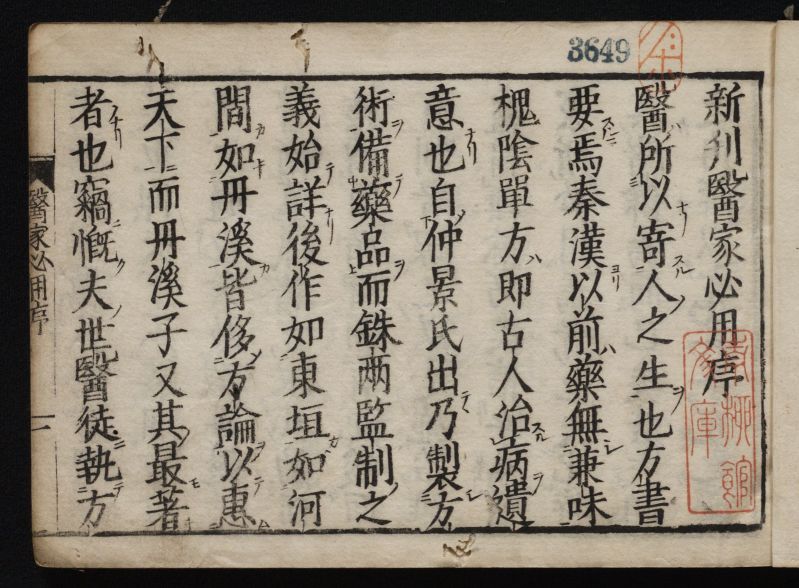 3649
新刋醫家必用序
醫所以寄人之生也方書
要焉秦漢以前藥無兼味
槐陰單方即古人治病遺
意也自仲景氏出乃製方
術備藥品而銖兩監制之
義始詳後作如東垣如河
間如丹溪皆侈方論以惠
天下而丹溪子又其最著
者也竊慨夫世醫徒執方
醫家必用序 一
青栁館
文庫